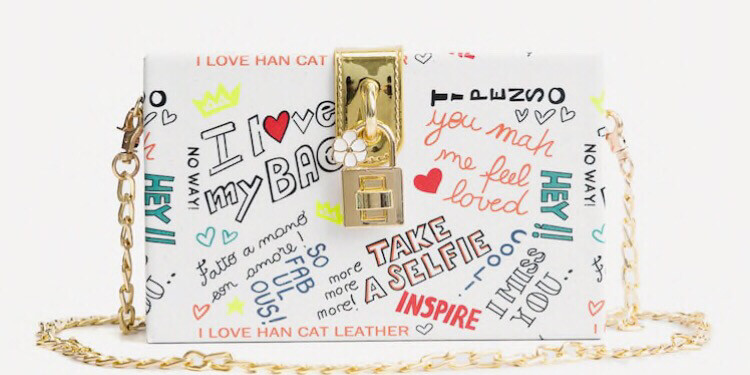 I LOVE HAN CAT
LEATHER
I love
my BAG
NO WAY!
HEY!!
TI PENSO
you mah
me feel
loved
HEY!!
NO WAY!
Fatto a mano
con amore!
SO
FAB
UL
OUS!
more
more
more!
TAKE
A SELFIE
COOL..
INSPIRE
I MISS
YOU..
I LOVE HAN CAT LEATHER